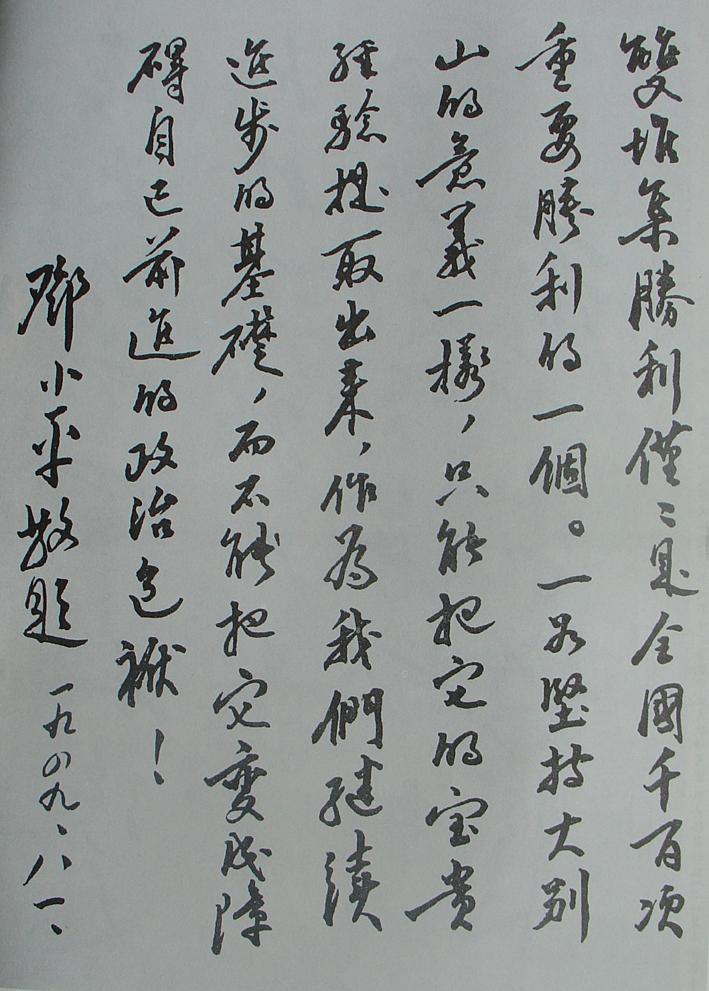 雙堆集勝利僅〻是全國千百項
重要勝利的一個。一如堅持大別
山的意義一樣，只能把它的宝贵
經驗提取出來，作為我們继續
進步的基礎，而不能把它变成障
碍自己前進的政治包袱！
鄧小平敬題 一九四九、八一、